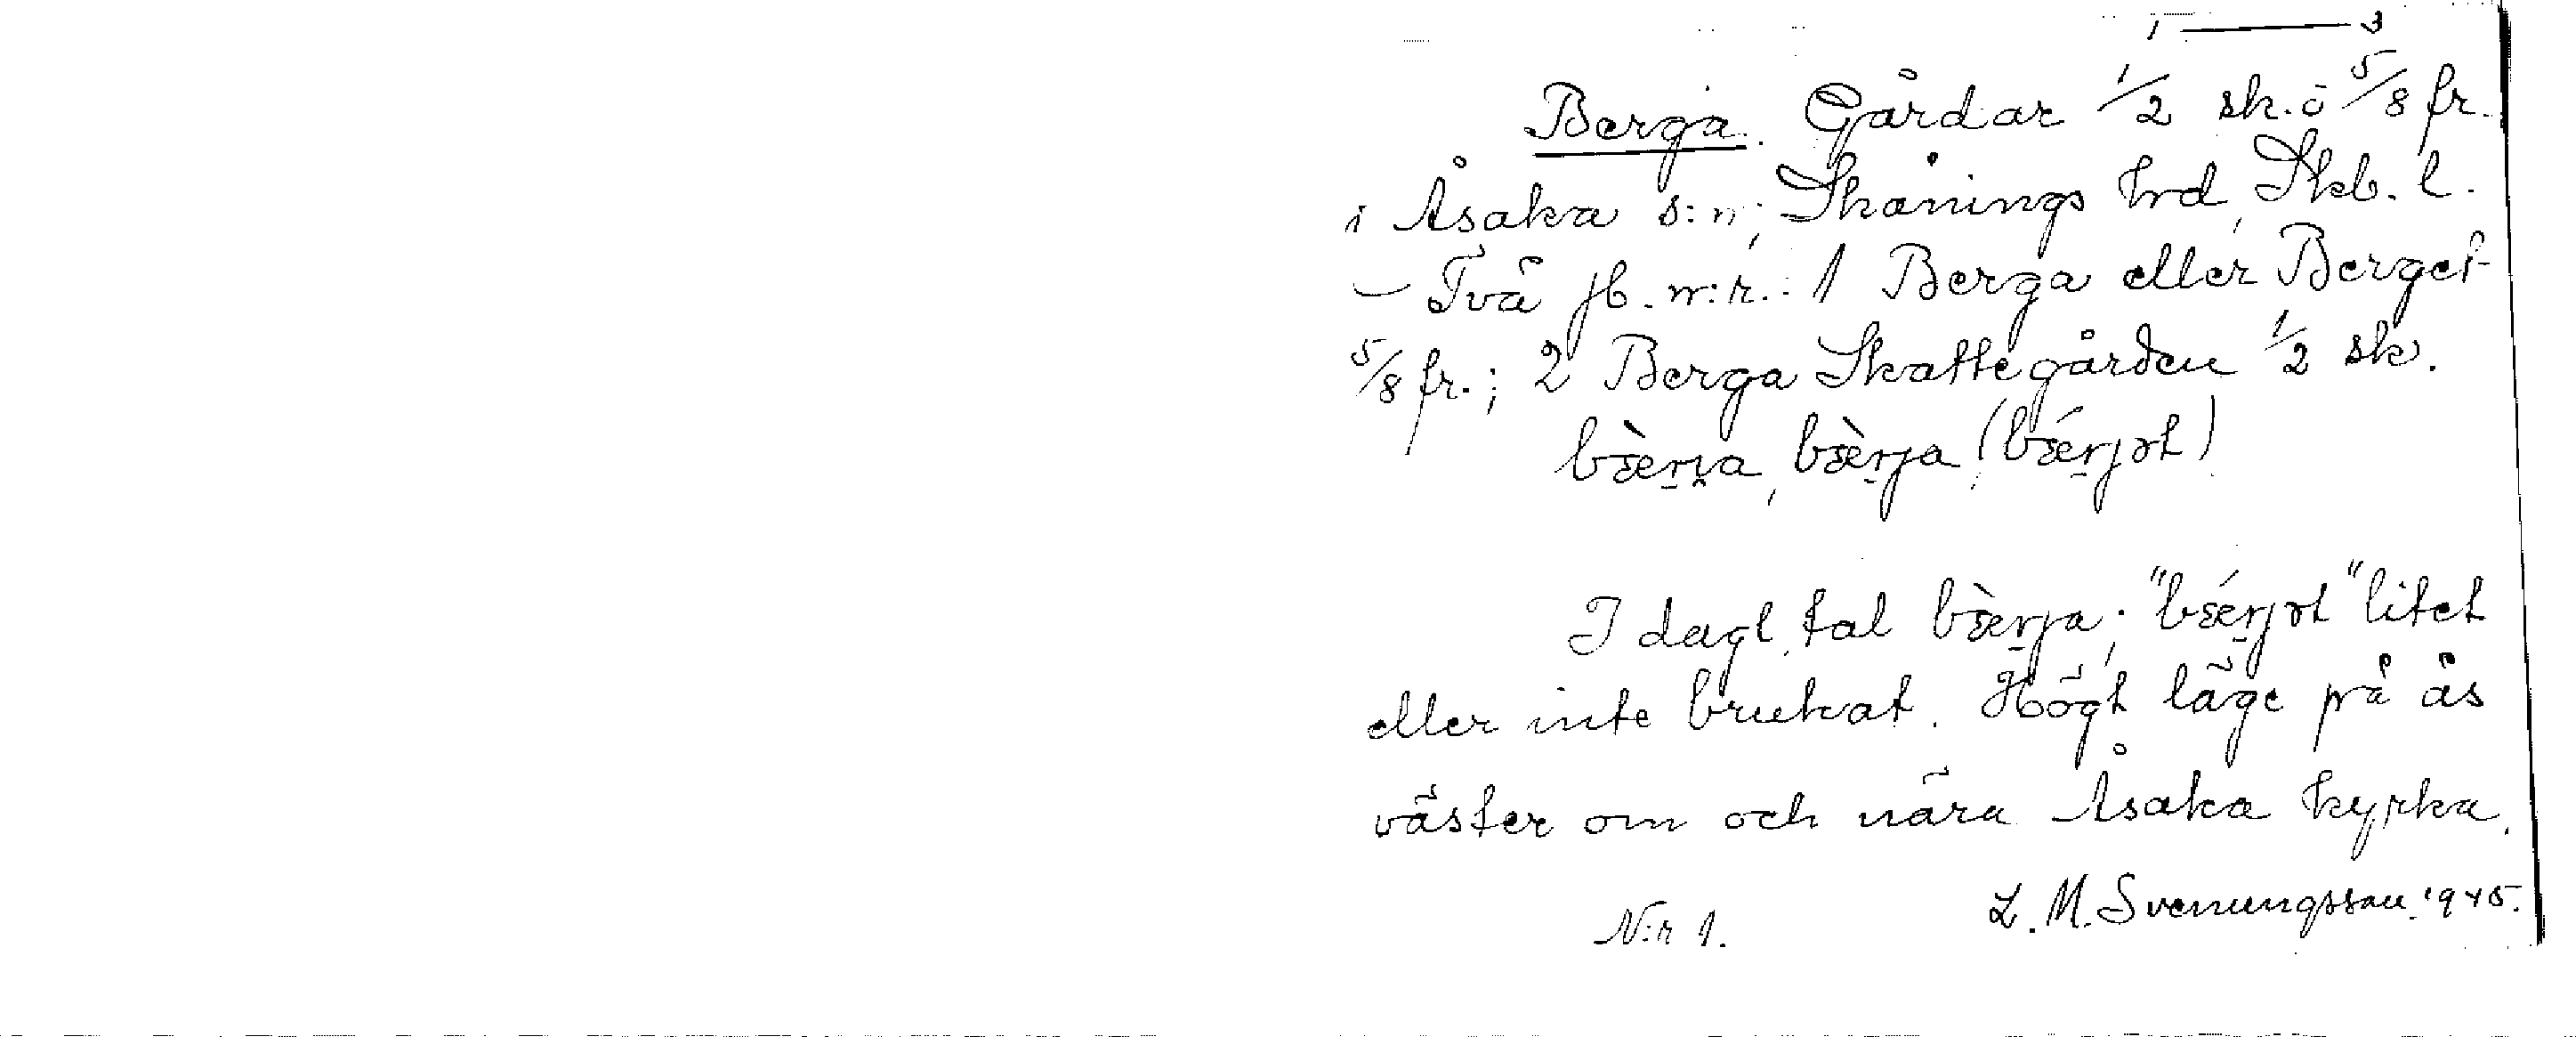 1 — 3
Berga. Gårdar 1/2 sk. o 5/8 fr.
i Åsaka s:n, Skånings hrd, Skb. l.
– Två jb. n:r.: 1 Berga eller Berget
5/8 fr.; 2 Berga Skattegården 1/2 sk.
bæ̀rja, bæ̀rja (bǽrjət)
I dagl. tal bæ̀rja; "bǽrjət" litet
eller inte brukat. Högt läge på ås
väster om och nära Åsaka kyrka.
N:r 1. L. M. Svenungsson. 1945.